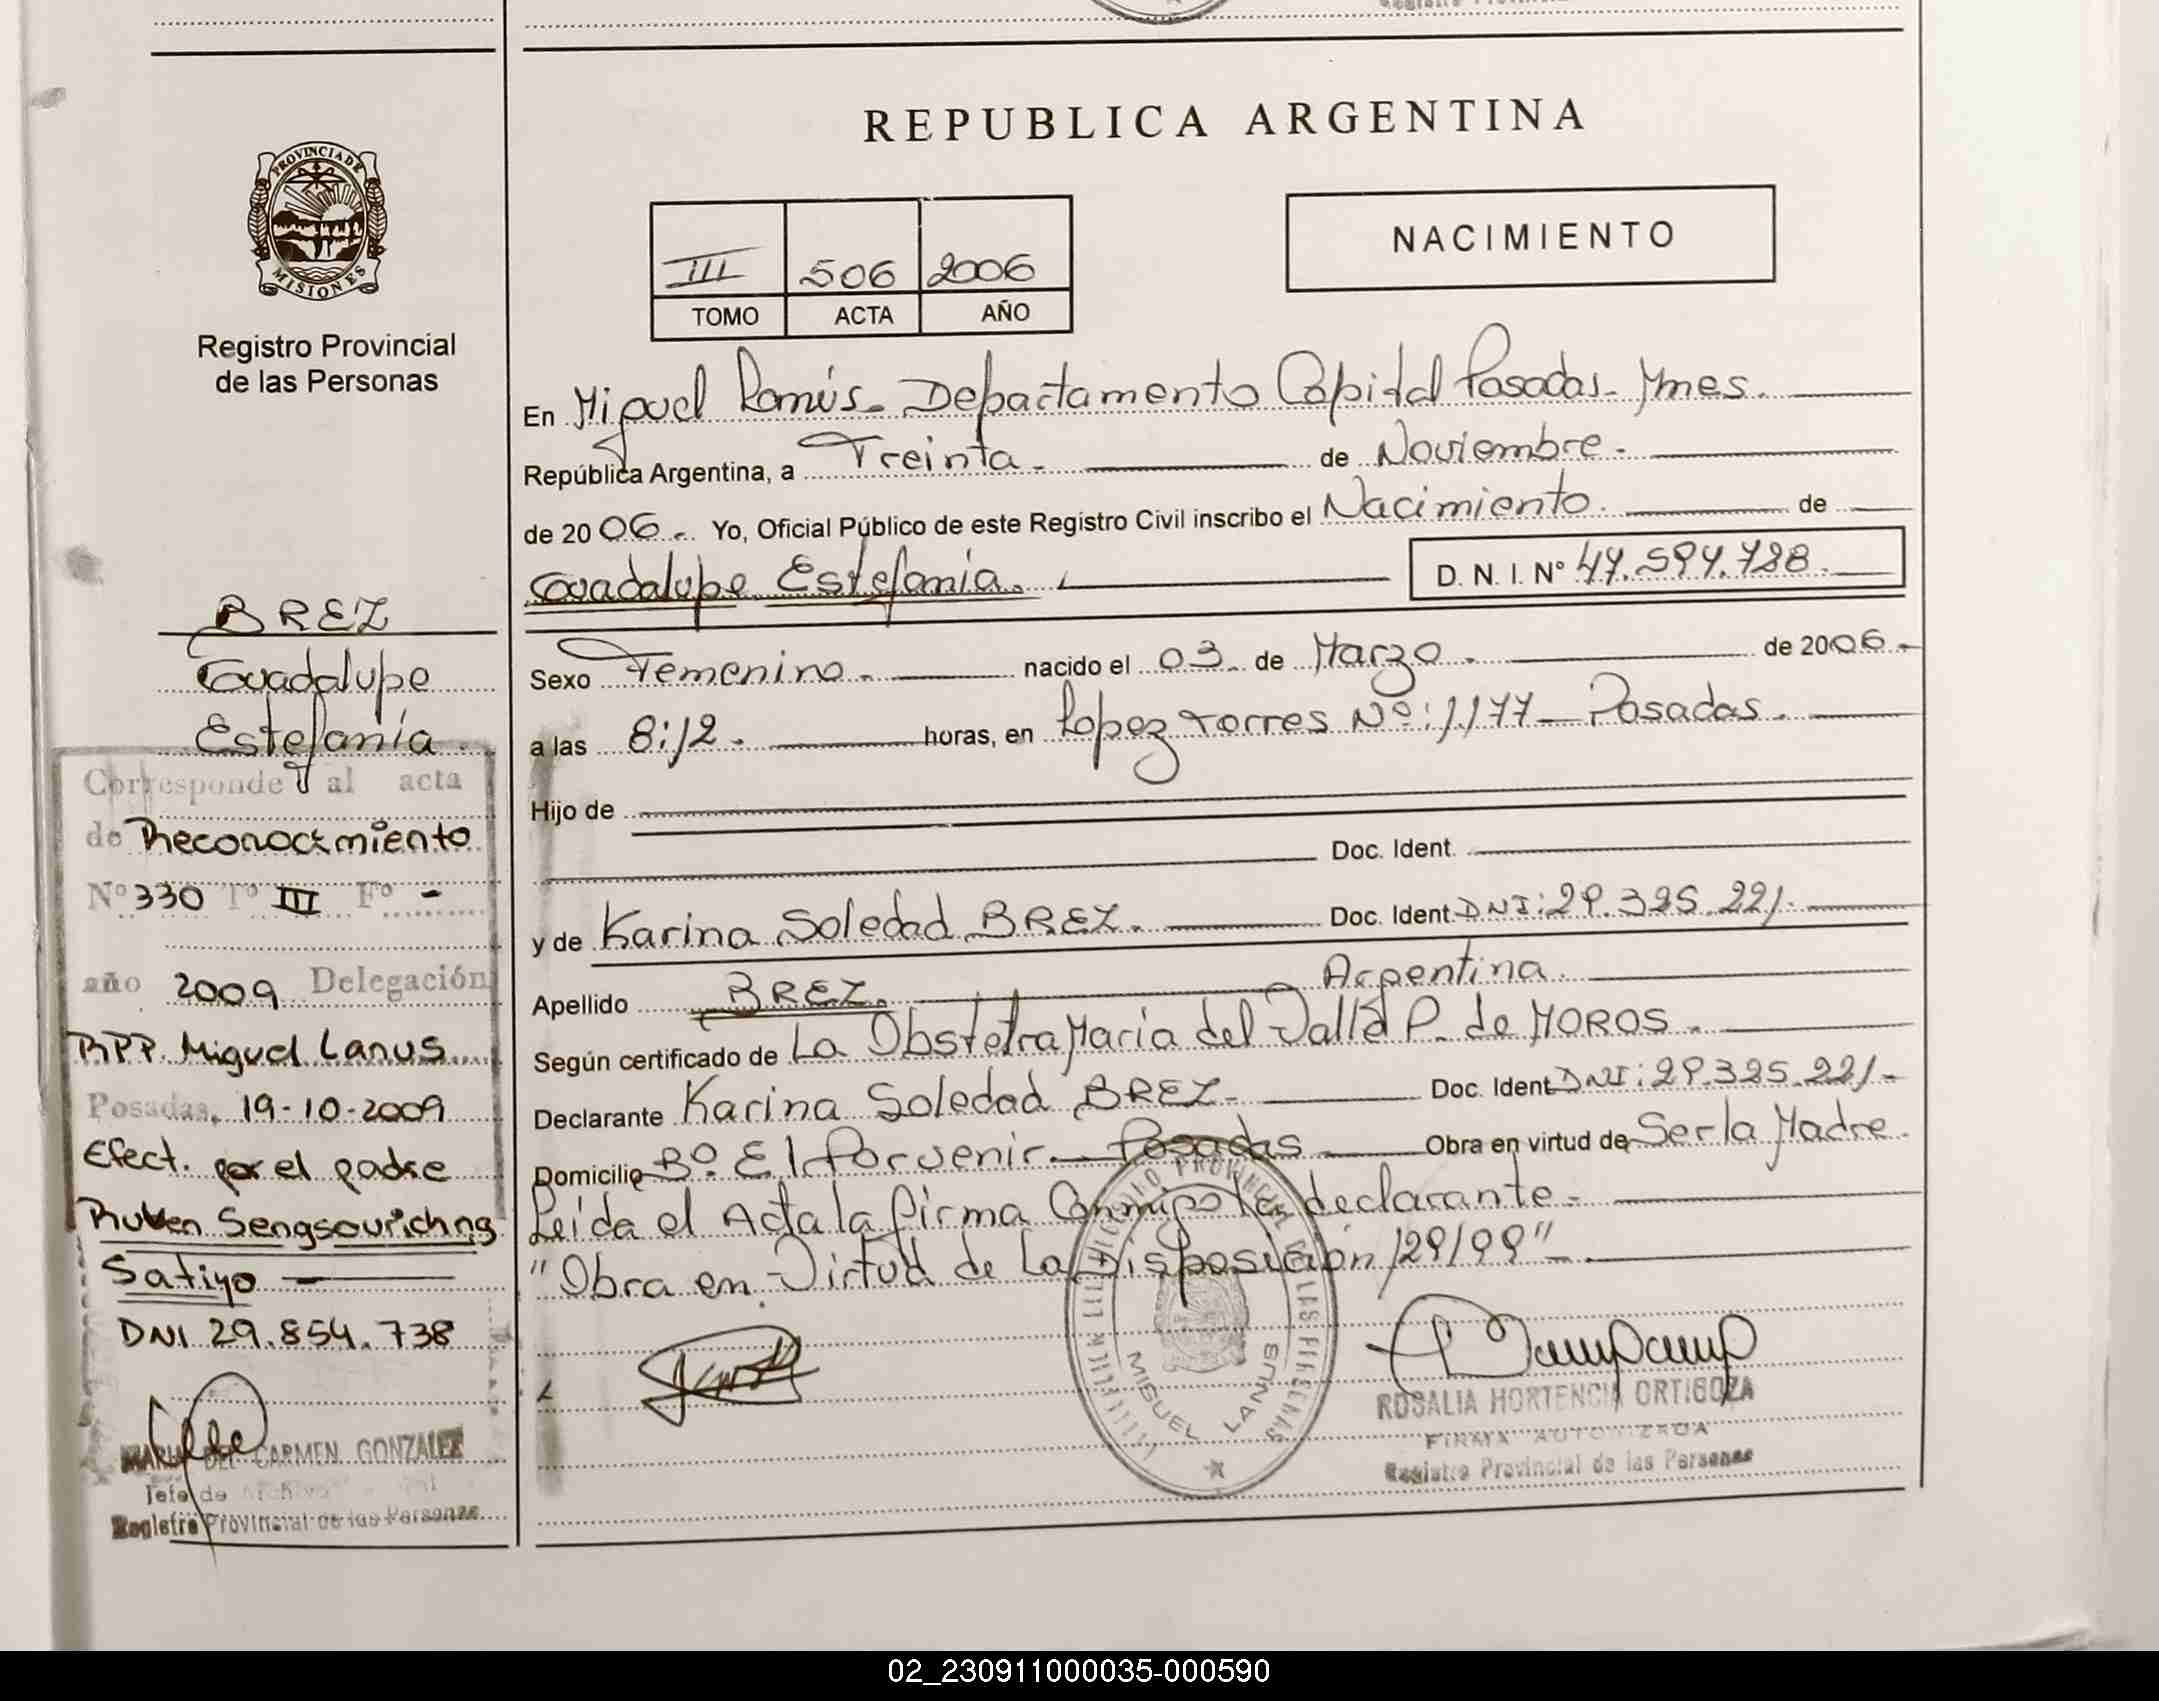 REPUBLICA ARGENTINA
PROVINCIA DE
MISIONES
Registro Provincial
de las Personas
III 506 2006
TOMO ACTA AÑO
NACIMIENTO
En Miguel Lanús. Departamento Capital Posadas. Mnes.
República Argentina, a Treinta. de Noviembre.
de 20 06. Yo, Oficial Público de este Registro Civil inscribo el Nacimiento. de
Guadalupe Estefanía. D. N. I. Nº 47.594.728.
Sexo Femenino. nacido el 03 de Marzo. de 2006.
a las 8:12. horas, en Lopez Torres Nº: 1177 - Posadas.
Hijo de
Doc. Ident.
y de Karina Soledad BREZ. Doc. Ident. DNI: 29.325.221.
Apellido BREZ. Argentina.
Según certificado de La Obstetra Maria del Valle P. de MOROS.
Declarante Karina Soledad BREZ. Doc. Ident. DNI: 29.325.221.
Domicilio Bº. El Porvenir. Posadas Obra en virtud de Ser la Madre.
Leída el Acta la firma Conmigo la declarante.
"Obra en Virtud de La Disposición 129/99"
MIGUEL LANUS
ROSALIA HORTENCIA ORTIGOZA
FIRMA AUTORIZADA
Registro Provincial de las Personas
BREZ
Guadalupe
Estefanía.
Corresponde al acta
de Reconocimiento
Nº 330 Tº III Fº -
año 2009 Delegación
RPP. Miguel Lanus
Posadas, 19-10-2009
Efect. por el padre
Ruben Sengsourichng
Satiyo
DNI 29.854.738
MARIA DEL CARMEN GONZALEZ
Jefe de Archivo
Registro Provincial de las Personas
02_230911000035-000590